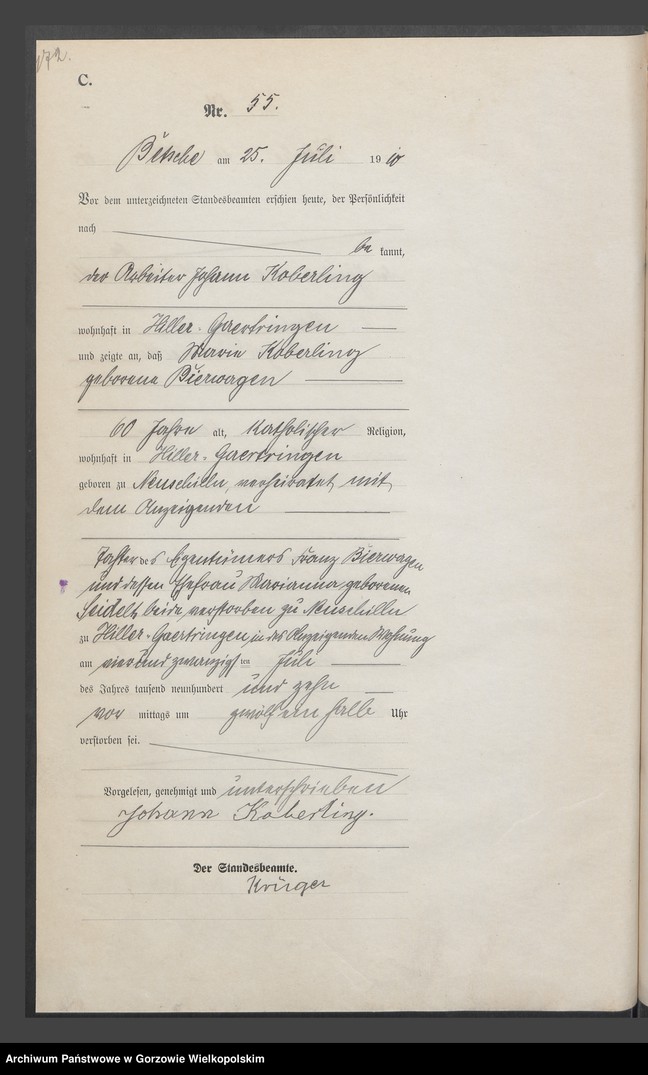 172.
C.
Nr. 55.
Betsche am 25. Juli 1910
Vor dem unterzeichneten Standesbeamten erschien heute, der Persönlichkeit
nach
be kannt,
der Arbeiter Johann Koberling
wohnhaft in Hiller-Gaertringen
und zeigte an, daß Marie Koberling
geborene Bierwagen
60 Jahre alt, katholischer Religion,
wohnhaft in Hiller-Gaertringen
geboren zu Neuschilln, verheiratet mit
dem Anzeigenden
Tochter des Eigentümers Franz Bierwagen
und dessen Ehefrau Marianna geborenen
Seidelt, beide verstorben zu Neuschilln
zu Hiller-Gaertringen in des Anzeigenden Wohnung
am vierundzwanzigsten Juli
des Jahres tausend neunhundert und zehn
vor mittags um zwölf ein halb Uhr
verstorben sei.
Vorgelesen, genehmigt und unterschrieben
Johann Koberling.
Der Standesbeamte.
Krüger
Archiwum Państwowe w Gorzowie Wielkopolskim